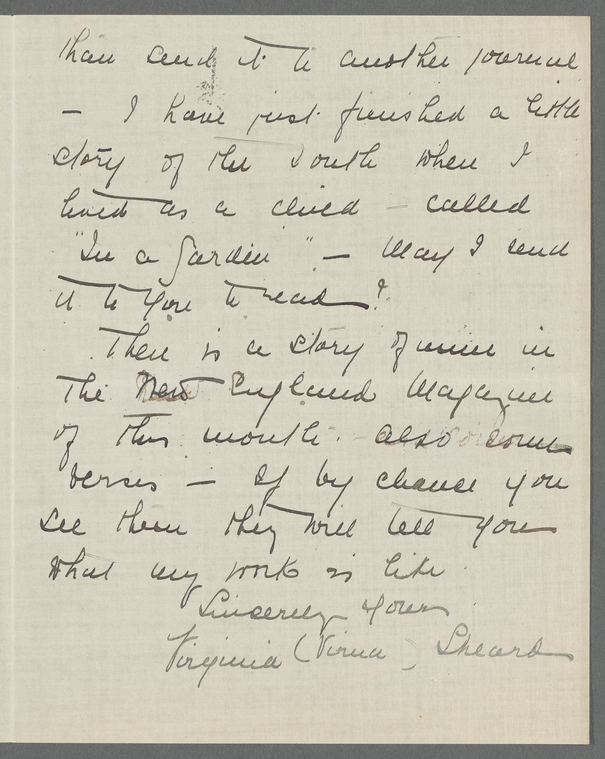 than send it to another journal
— I have just finished a little
story of the South when I
lived as a child – called
"In a Garden" — May I send
it to you to read?
There is a story of mine in
the New England Magazine
of this month. also some
verses — If by chance you
see them they will tell you
what my work is like.
Sincerely yours
Virginia (Virna) Sheard